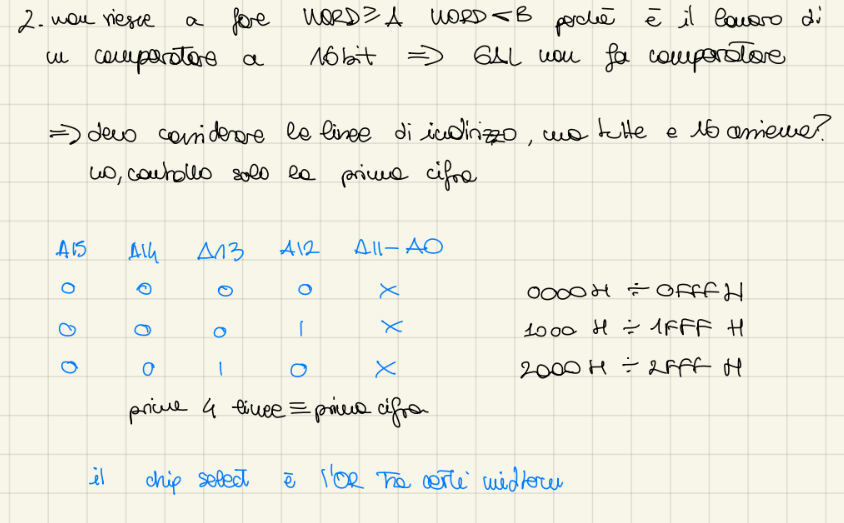 2. non riesce a fare WORD ≥ A WORD < B perchè è il lavoro di
un comparatore a 16 bit => GAL non fa comparatore
=> devo considerare le linee di indirizzo, ma tutte e 16 assieme?
no, controllo solo la prima cifra
A15 A14 A13 A12 A11-A0
0 0 0 0 X 0000 H ÷ 0FFF H
0 0 0 1 X 1000 H ÷ 1FFF H
0 0 1 0 X 2000 H ÷ 2FFF H
prime 4 linee ≡ prima cifra
il chip select è l'OR tra certi mintermi